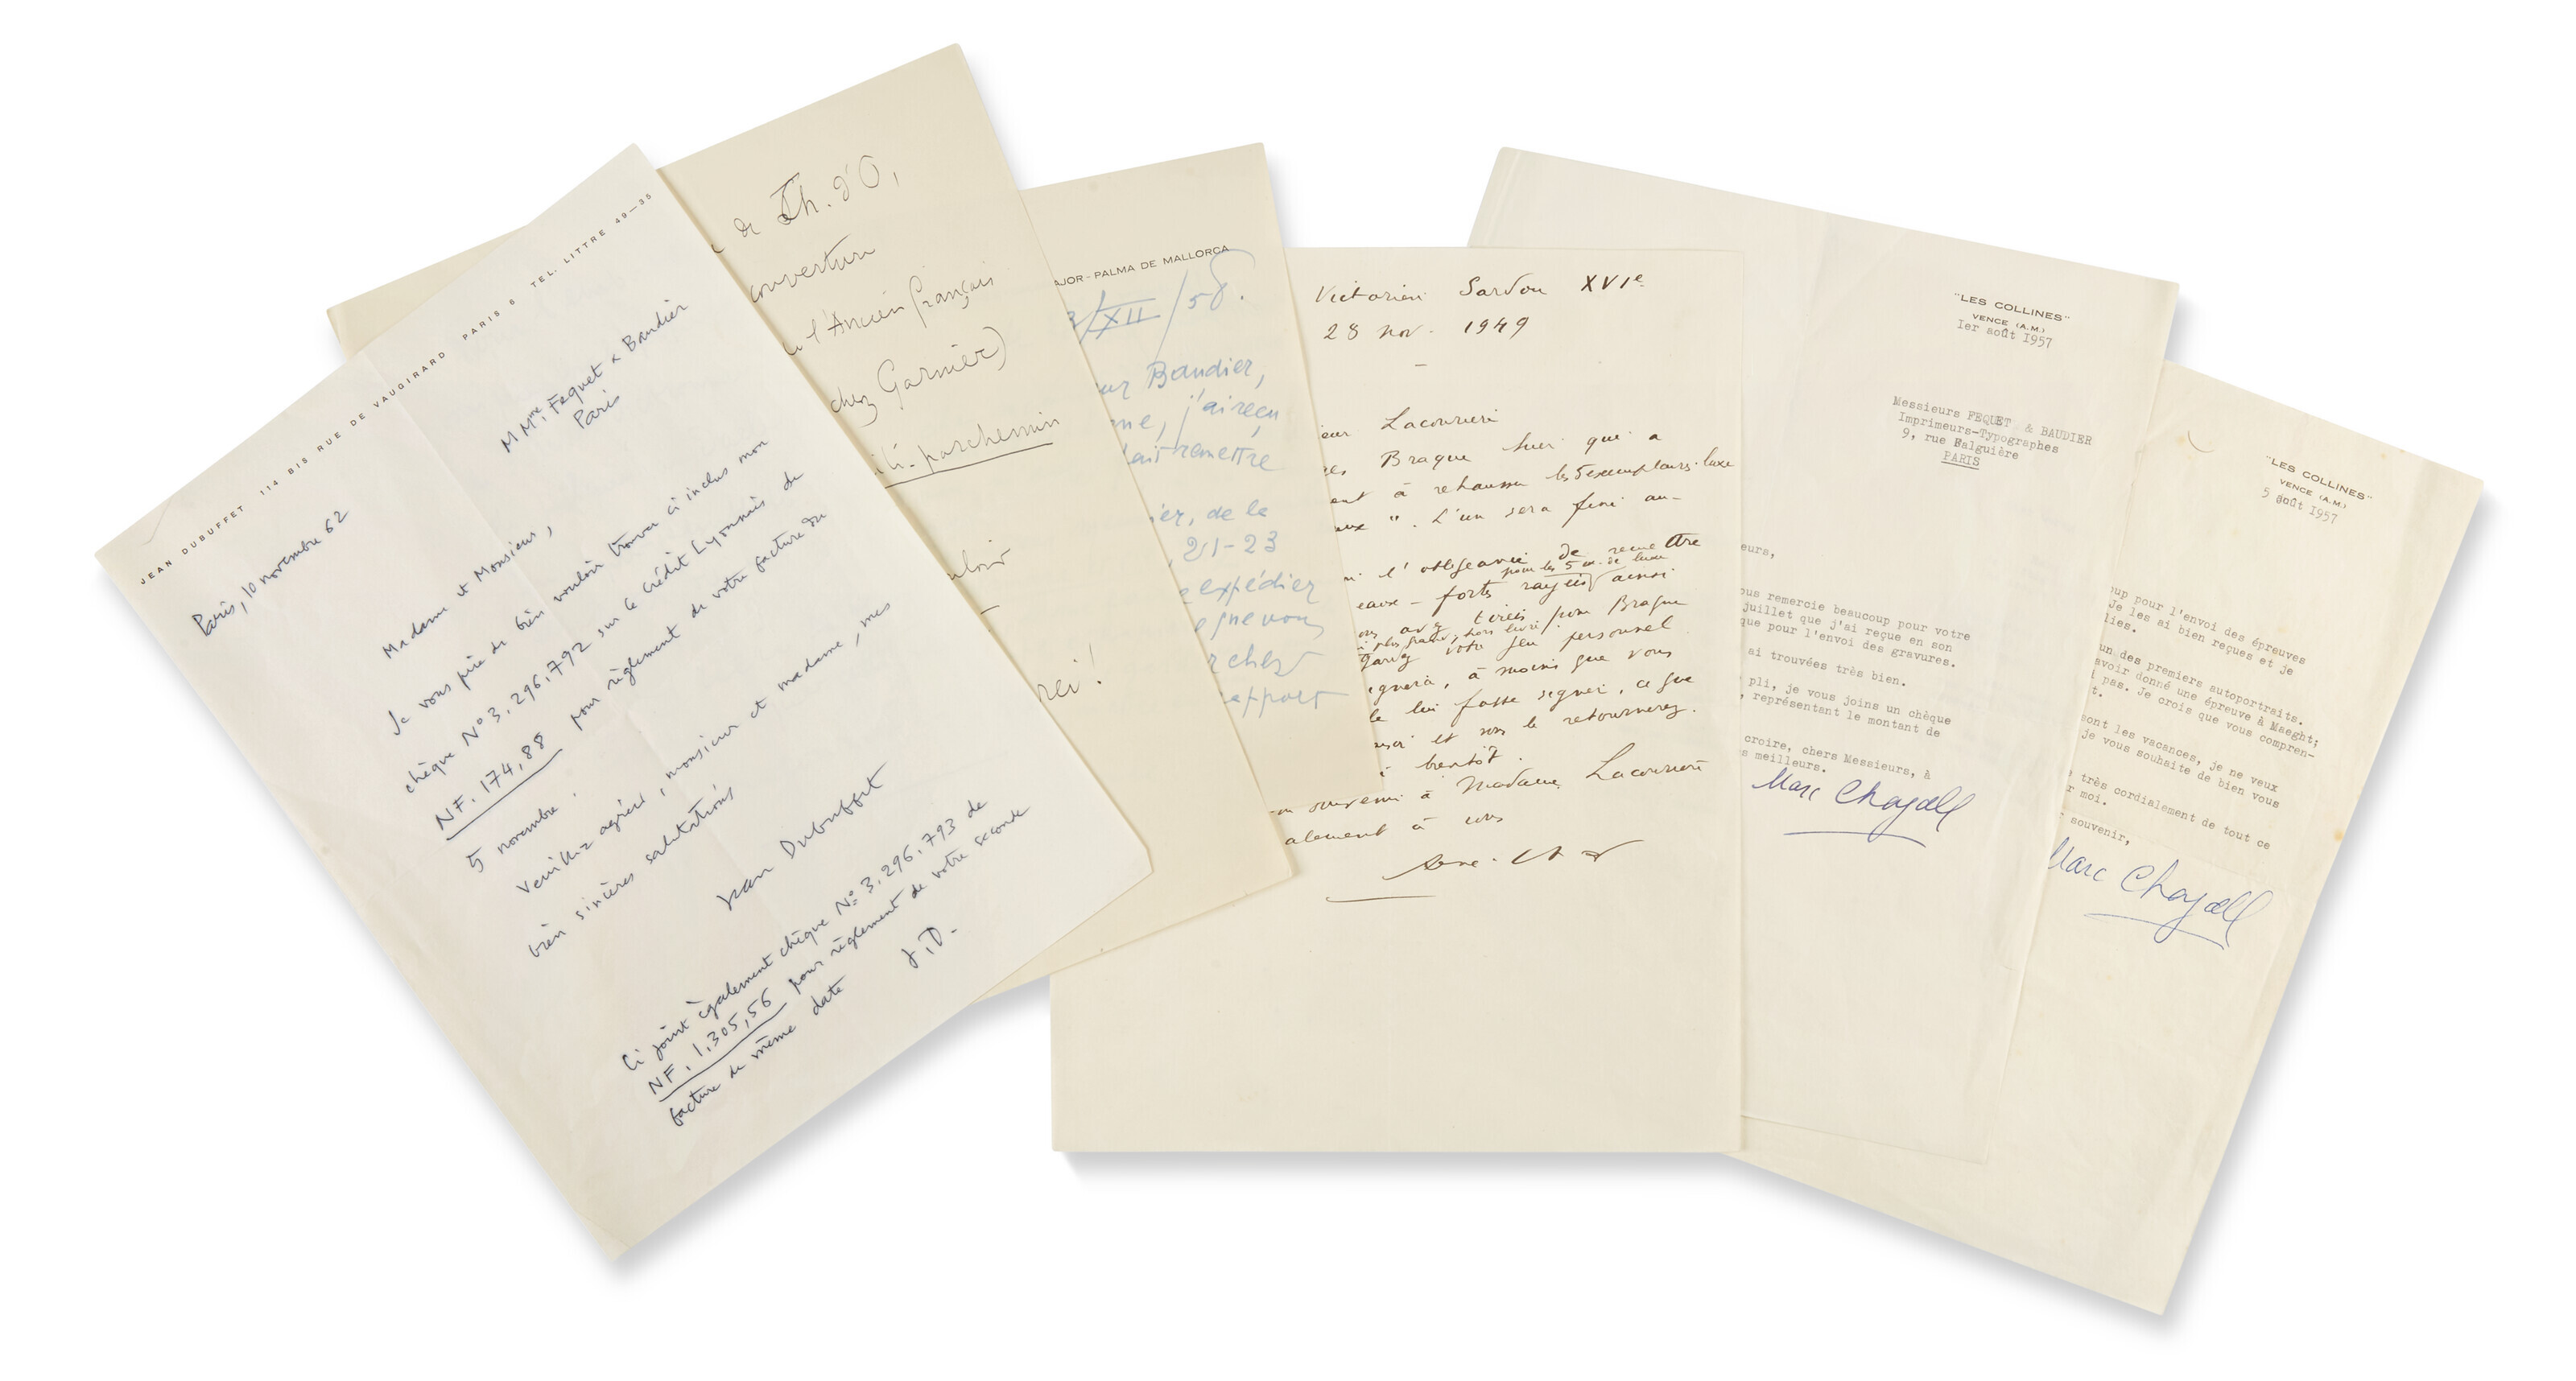 JEAN DUBUFFET 114 BIS RUE DE VAUGIRARD PARIS 6 TEL. LITTRE 49-35
Paris, 10 novembre 62
MMmes Fequet & Baudier
Paris
Madame et Monsieur,
Je vous prie de bien vouloir trouver ci inclus mon
chèque N° 3.296.792 sur le Crédit Lyonnais de
NF. 174,88 pour règlement de votre facture du
5 novembre.
Veuillez agréer, monsieur et madame, mes
bien sincères salutations
Jean Dubuffet
Ci joint également chèque N° 3.296.793 de
NF. 1.305,56 pour règlement de votre seconde
facture de même date
J.D.
de Th. d'O,
couverture
l'Ancien français
chez Garnier)
parchemin
ouloir
rci!
AJOR - PALMA DE MALLORCA
/XII/58.
ur Baudier,
ne, j'ai reçu
lait remettre
ier, de la
21-23
expédier
que vous
rchez
rapport
Victorien Sardou XVIe
28 nov. 1949
ieur Lacourière
Braque hier qui a
ent à rehausser les 5 exemplaires-luxe
aux". L'un sera fini au-
l'obligeance de remettre
pour les 5 ex. de luxe
eaux-fortes rayées ainsi
avez tirées pour Braque
plus grand, hors livre
votre jeu personnel
ignera, à moins que vous
le lui fasse signer, ce que
aussi et vous le retournerez.
à bientôt.
on souvenir à Madame Lacourière
alement à vous
"LES COLLINES"
VENCE (A.M.)
1er août 1957
Messieurs FEQUET & BAUDIER
Imprimeurs-Typographes
9, rue Falguière
PARIS
eurs,
ous remercie beaucoup pour votre
juillet que j'ai reçue en son
que pour l'envoi des gravures.
ai trouvées très bien.
pli, je vous joins un chèque
, représentant le montant de
croire, chers Messieurs, à
s meilleurs.
Marc Chagall
"LES COLLINES"
VENCE (A.M.)
5 août 1957
oup pour l'envoi des épreuves
Je les ai bien reçues et je
lies.
un des premiers autoportraits.
avoir donné une épreuve à Maeght;
i pas. Je crois que vous compren-
t.
sont les vacances, je ne veux
je vous souhaite de bien vous
très cordialement de tout ce
r moi.
r souvenir,
Marc Chagall